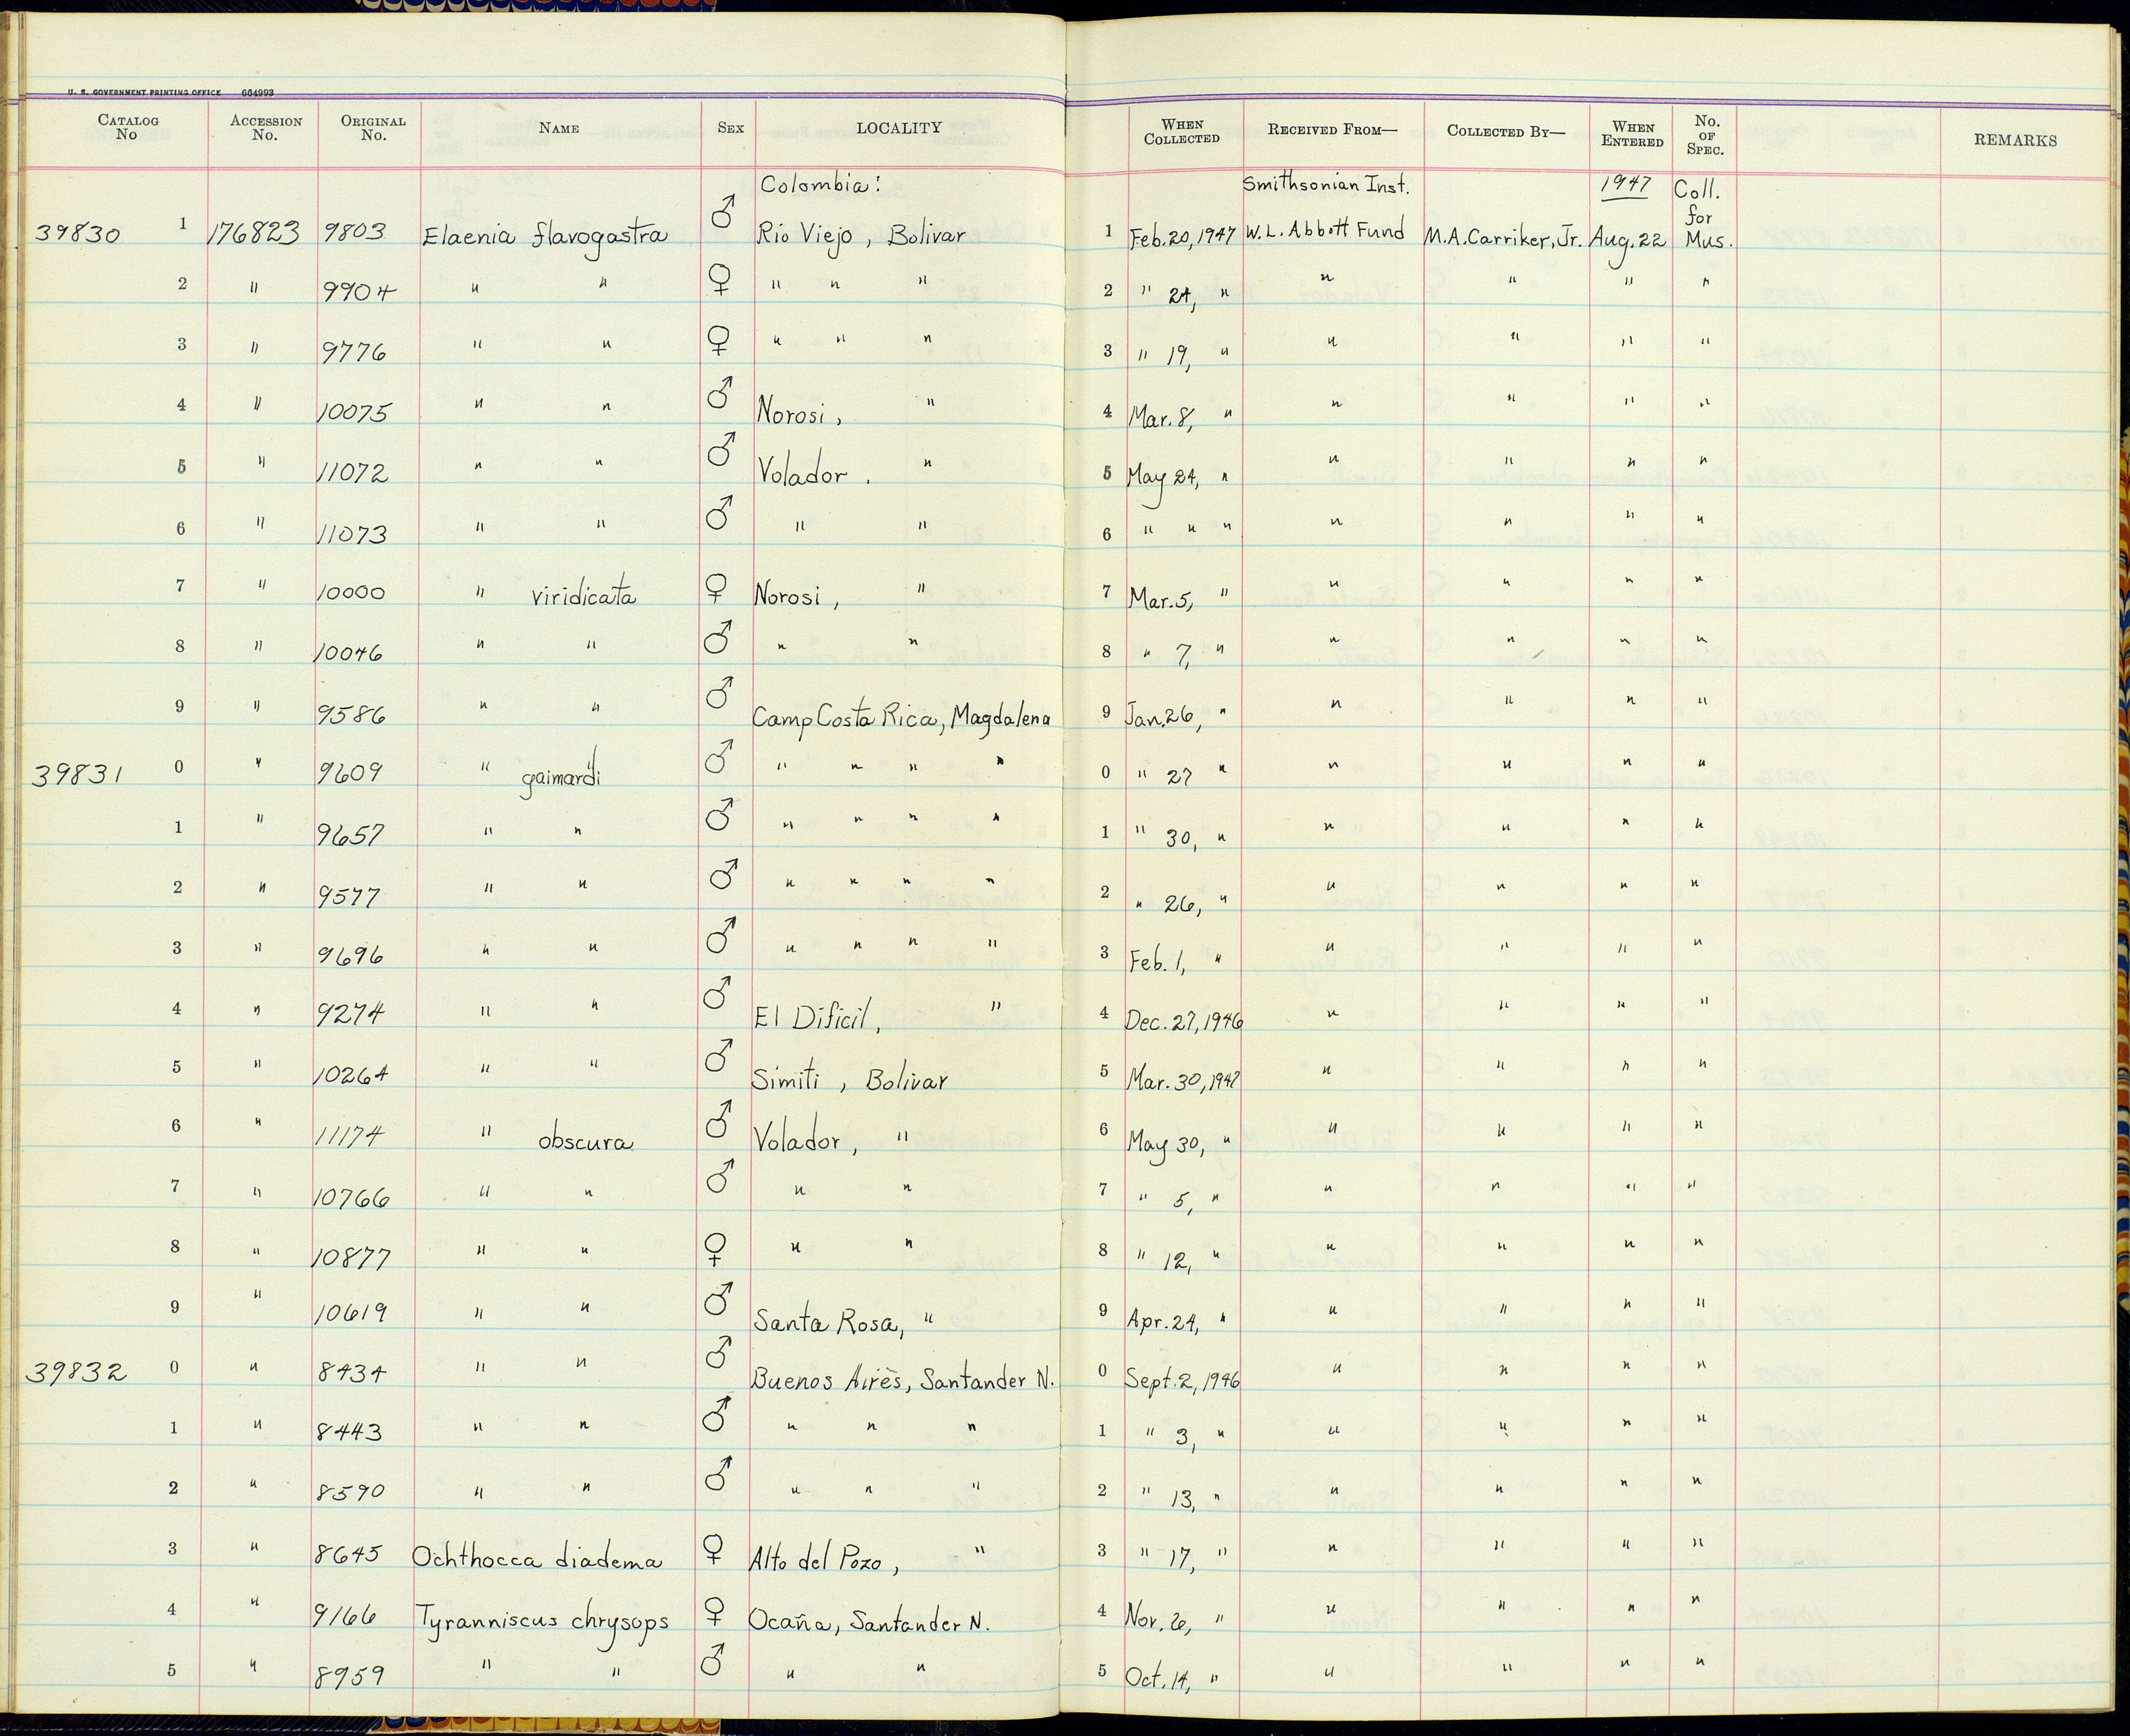 U. S. GOVERNMENT PRINTING OFFICE 664993
CATALOG No ACCESSION No. ORIGINAL No. NAME SEX LOCALITY WHEN COLLECTED RECEIVED FROM— COLLECTED BY— WHEN ENTERED No. OF SPEC. REMARKS
Colombia: Smithsonian Inst. 1947 Coll. for
39830 1 176823 9803 Elaenia flavogastra ♂ Rio Viejo, Bolivar 1 Feb. 20, 1947 W. L. Abbott Fund M.A. Carriker, Jr. Aug. 22 Mus.
2 " 9904 " " ♀ " " " 2 " 24, " " " " "
3 " 9776 " " ♀ " " " 3 " 19, " " " " "
4 " 10075 " " ♂ Norosi, " 4 Mar. 8, " " " " "
5 " 11072 " " ♂ Volador. " 5 May 24, " " " " "
6 " 11073 " " ♂ " " 6 " " " " " " "
7 " 10000 " viridicata ♀ Norosi, " 7 Mar. 5, " " " " "
8 " 10046 " " ♂ " " 8 " 7, " " " " "
9 " 9586 " " ♂ Camp Costa Rica, Magdalena 9 Jan. 26, " " " " "
39831 0 " 9609 " gaimardi ♂ " " " " 0 " 27 " " " " "
1 " 9657 " " ♂ " " " " 1 " 30, " " " " "
2 " 9577 " " ♂ " " " " 2 " 26, " " " " "
3 " 9696 " " ♂ " " " " 3 Feb. 1, " " " " "
4 " 9274 " " ♂ El Dificil, " 4 Dec. 27, 1946 " " " "
5 " 10264 " " ♂ Simiti, Bolivar 5 Mar. 30, 1947 " " " "
6 " 11174 " obscura ♂ Volador, " 6 May 30, " " " " "
7 " 10766 " " ♂ " " 7 " 5, " " " " "
8 " 10877 " " ♀ " " 8 " 12, " " " " "
9 " 10619 " " ♂ Santa Rosa, " 9 Apr. 24, " " " " "
39832 0 " 8434 " " ♂ Buenos Aires, Santander N. 0 Sept. 2, 1946 " " " "
1 " 8443 " " ♂ " " " 1 " 3, " " " " "
2 " 8590 " " ♂ " " " 2 " 13, " " " " "
3 " 8645 Ochthocca diadema ♀ Alto del Pozo, " 3 " 17, " " " " "
4 " 9166 Tyranniscus chrysops ♀ Ocaña, Santander N. 4 Nov. 6, " " " " "
5 " 8959 " " ♂ " " 5 Oct. 14, " " " " "